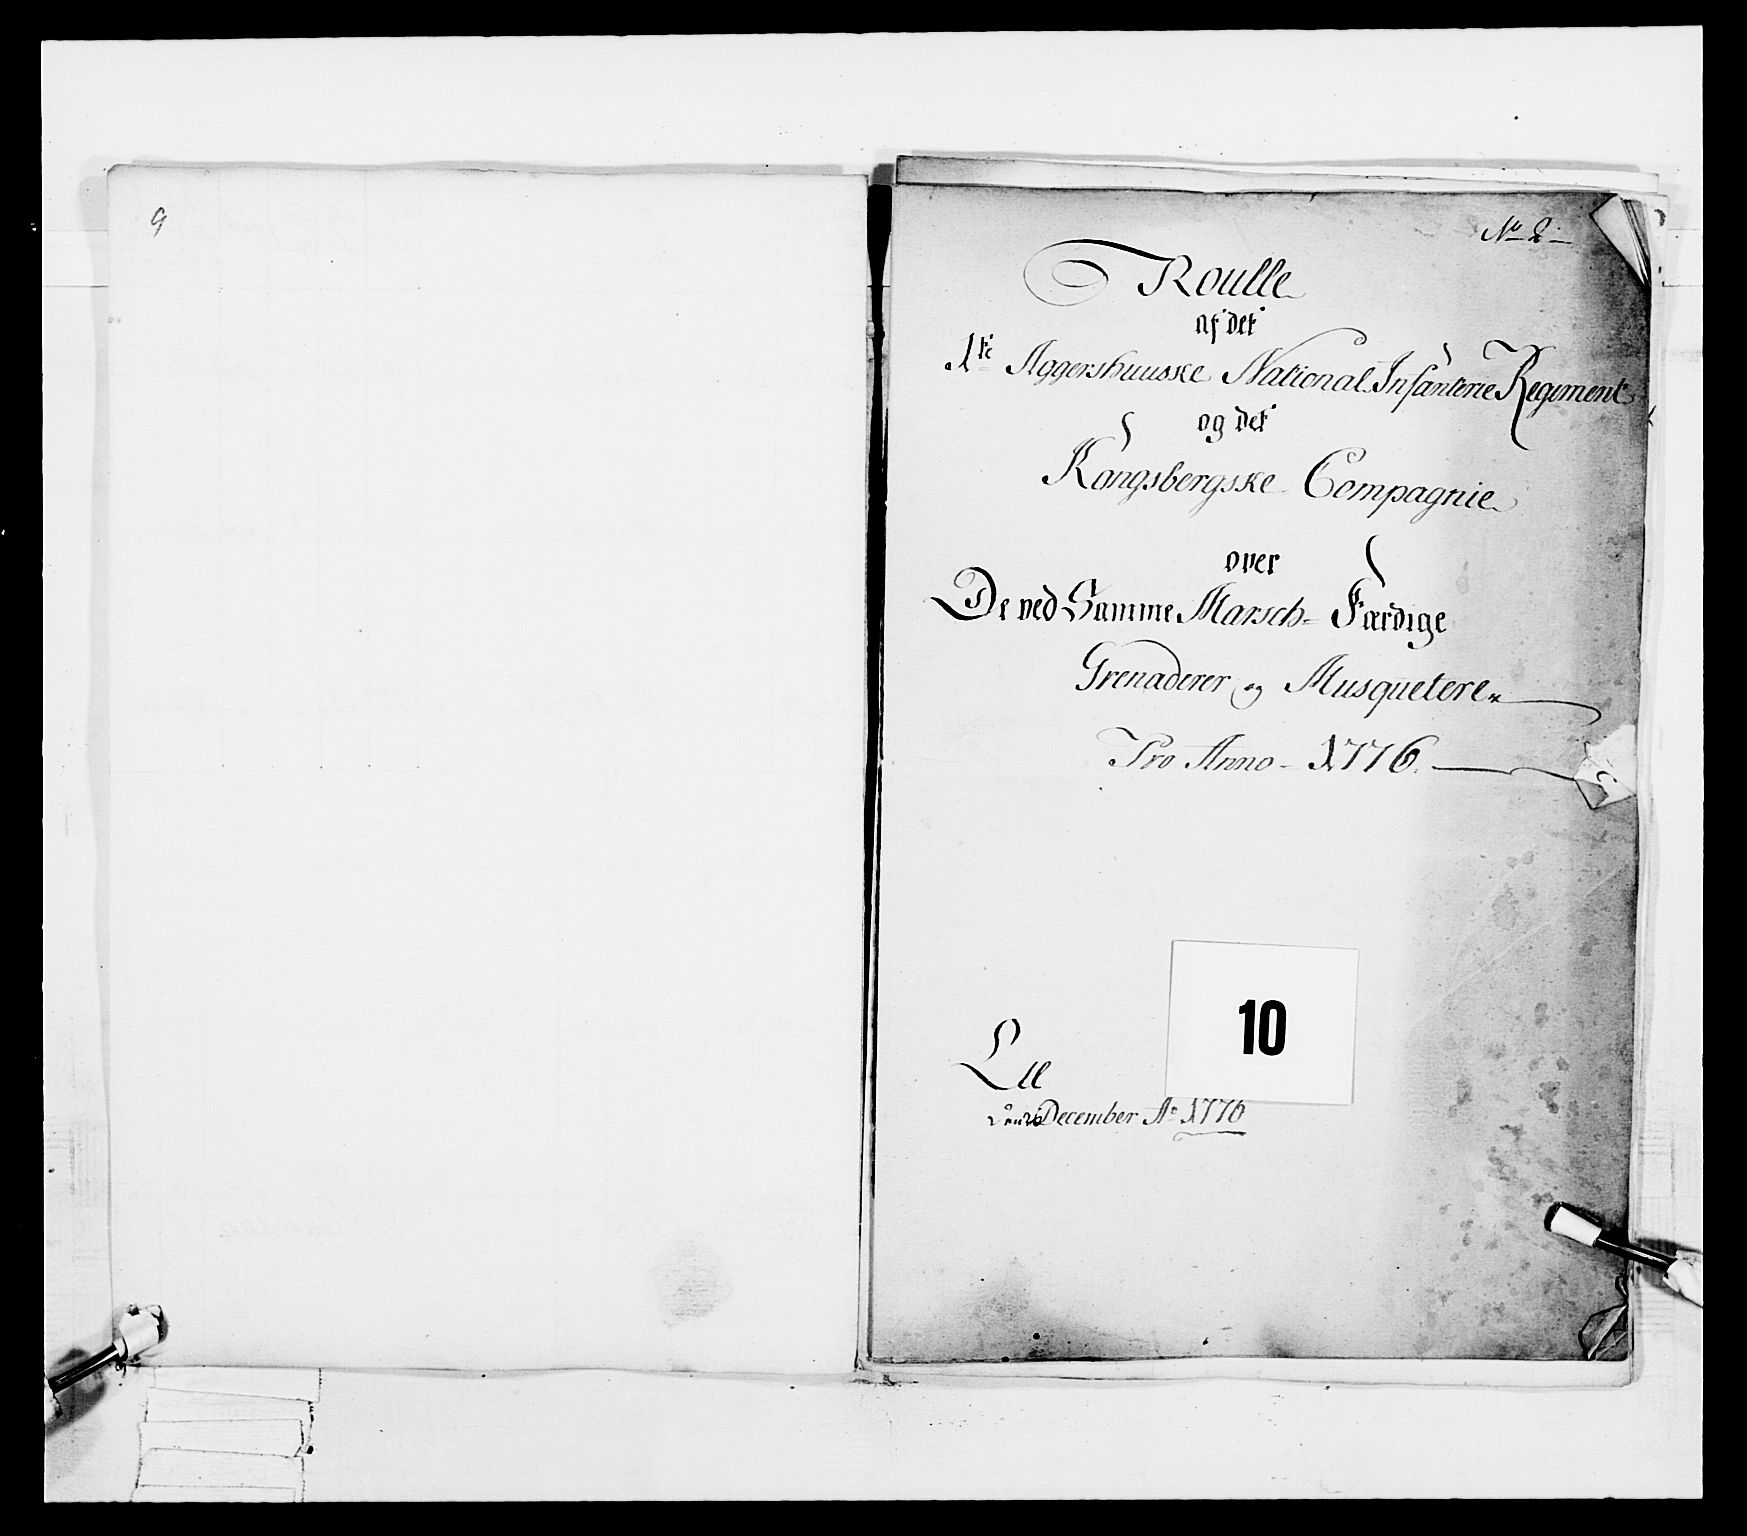 9
No 2
Roulle
af det
1te Aggershuuske National Infanterie Regiment
og det
Kongsbergske Compagnie
over
De ved Samme Marsch-Færdige
Grenaderer og Musqueterer
Pro Anno - 1776.
10
Lie
December Ao 1776